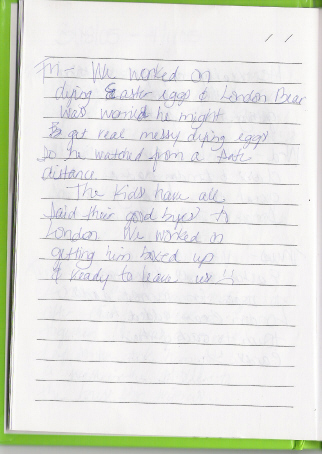 Fri - We worked on
dying Easter eggs & London Bear
was worried he might
get real messy dying eggs
So he watched from a
distance
- The kids have all
said their good byes to
London. We worked on
getting him boxed up
& ready to leave us